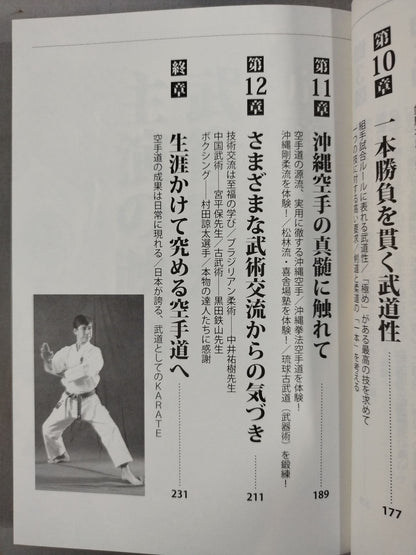 第10章 一本勝負を貫く武道性
組手試合ルールに表れる武道性／「極め」がある最高の技を求めて
一つの技に対する高い要求／剣道と柔道の「一本」を考える
177
第11章 沖縄空手の真髄に触れて
空手道の源流、実用に徹する沖縄空手／沖縄拳法空手道を体験！
沖縄剛柔流を体験！／松林流・喜舎場塾を体験！／琉球古武道（武器術）を鍛練！
189
第12章 さまざまな武術交流からの気づき
技術交流は至福の学び／ブラジリアン柔術――中井祐樹先生
中国武術――宮平保先生／古武術――黒田鉄山先生
ボクシング――村田諒太選手／本物の達人たちに感謝
211
終章 生涯かけて究める空手道へ
空手道の成果は日常に現れる／日本が誇る、武道としてのKARATE
231